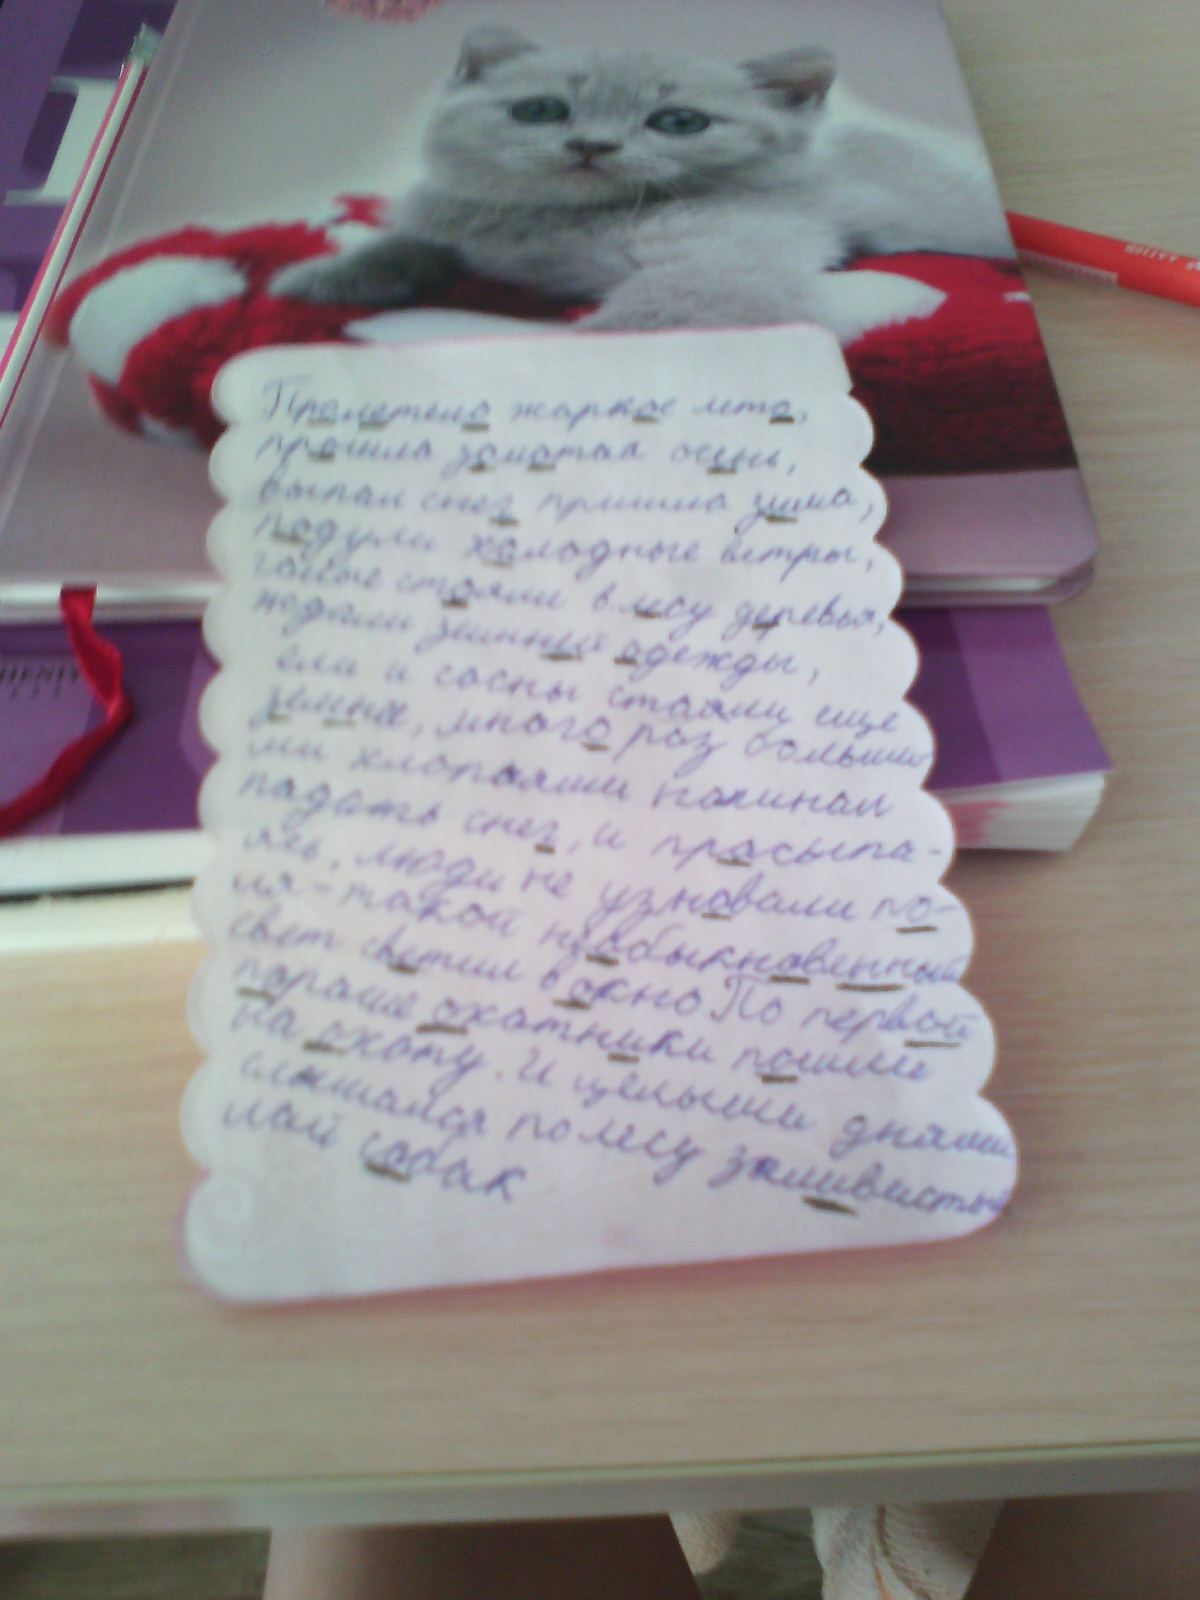 Пролетело жаркое лето,
прошла золотая осень,
выпал снег пришла зима,
подули холодные ветры,
голые стояли в лесу деревья,
ждали зимней одежды,
ели и сосны стояли еще
много раз большими
ми хлопьями начинал
падать снег, и просыпа-
ясь, люди не узновали по-
ля-такой необыкновенный
свет светил в окно По первой
пороше охотники пошли
на охоту. И целыми днями
слышался по лесу заливистый
лай собак